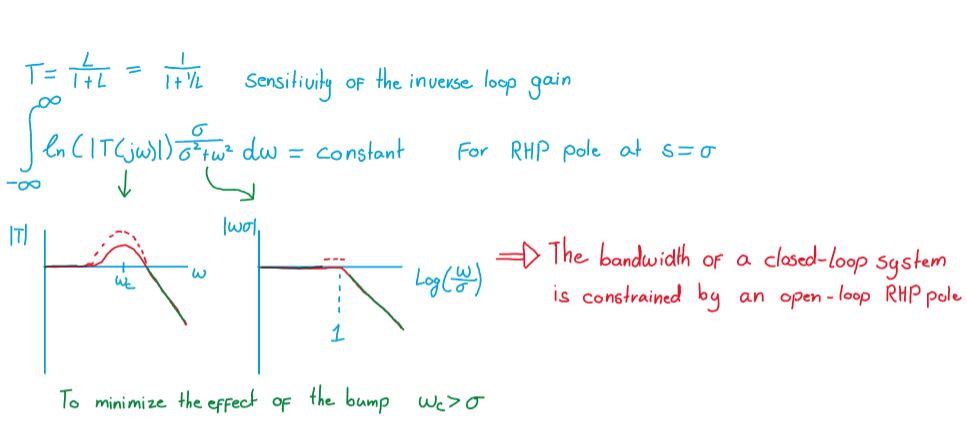 T = L/(1+L) = 1/(1+1/L) Sensitivity of the inverse loop gain
∫_{-∞}^{∞} ln(|T(jω)|) σ/(σ²+ω²) dω = constant For RHP pole at s=σ
|T|
ωc
ω
|ωσ|
Log(ω/σ)
1
⇒ The bandwidth of a closed-loop system
is constrained by an open-loop RHP pole
To minimize the effect of the bump ωc>σ